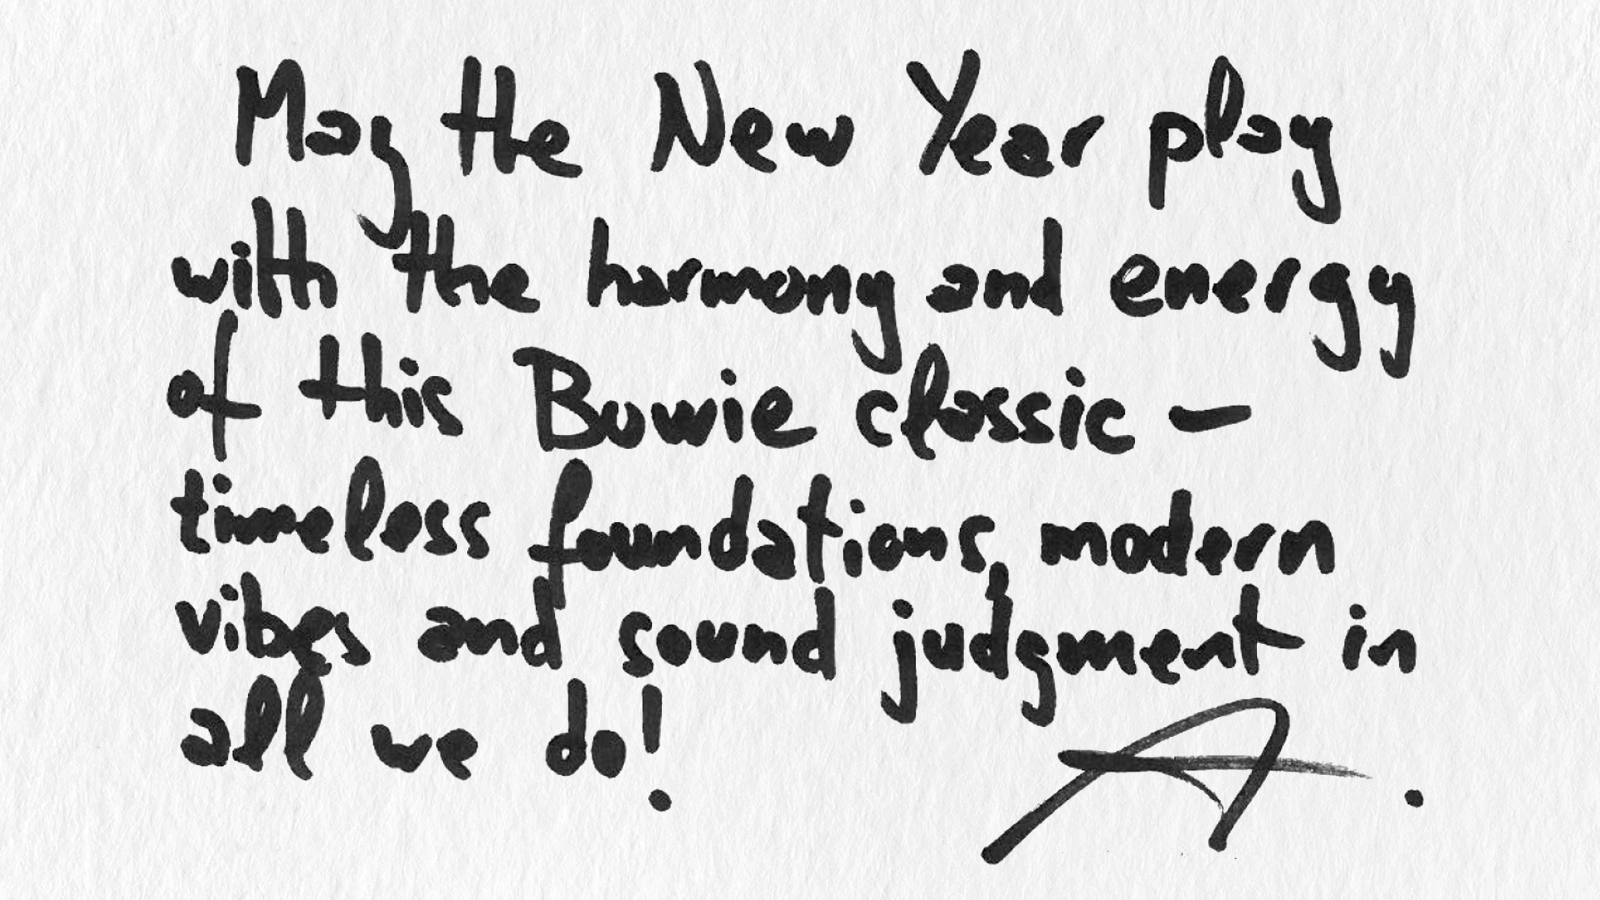 May the New Year play
with the harmony and energy
of this Bowie classic –
timeless foundations, modern
vibes and sound judgment in
all we do!
A.